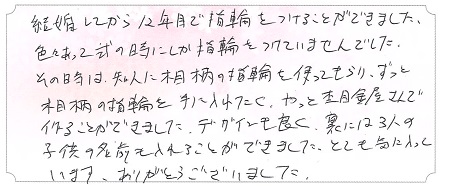 結婚してから12年目で指輪をつけることができました。
色々あって式の時にしか指輪をつけていませんでした。
その時は、知人に木目柄の指輪を使ってもらい、ずっと
木目柄の指輪を手に入れたく、やっと杢目金屋さんで
作ることができました。デザインも良く、裏には3人の
子供の名前も入れることができました。とても気に入って
います。ありがとうございました。